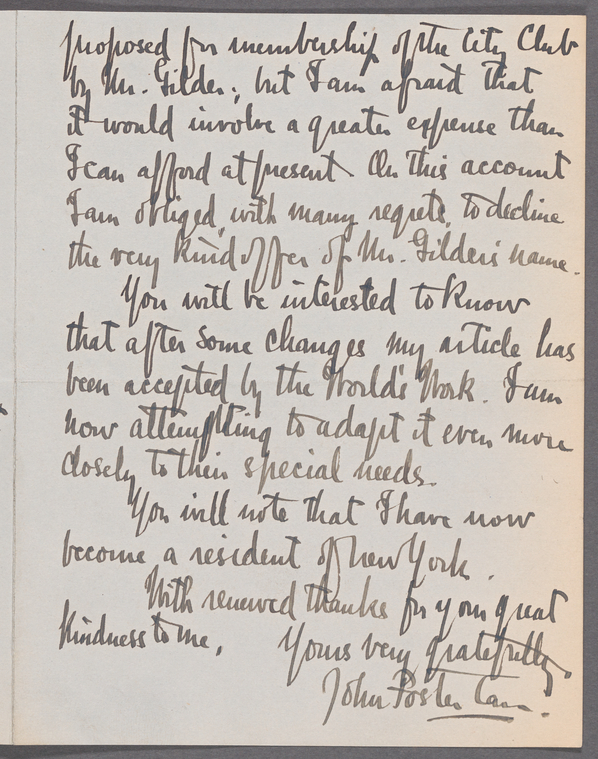 proposed for membership of the City Club
by Mr. Gilder; but I am afraid that
it would involve a greater expense than
I can afford at present. On this account
I am obliged, with many regrets, to decline
the very kind offer of Mr. Gilder's name.
You will be interested to know
that after some changes my article has
been accepted by the World's Work. I am
now attempting to adapt it even more
closely to their special needs.
You will note that I have now
become a resident of New York.
With renewed thanks for your great
kindness to me,
Yours very gratefully
John Foster Carr.